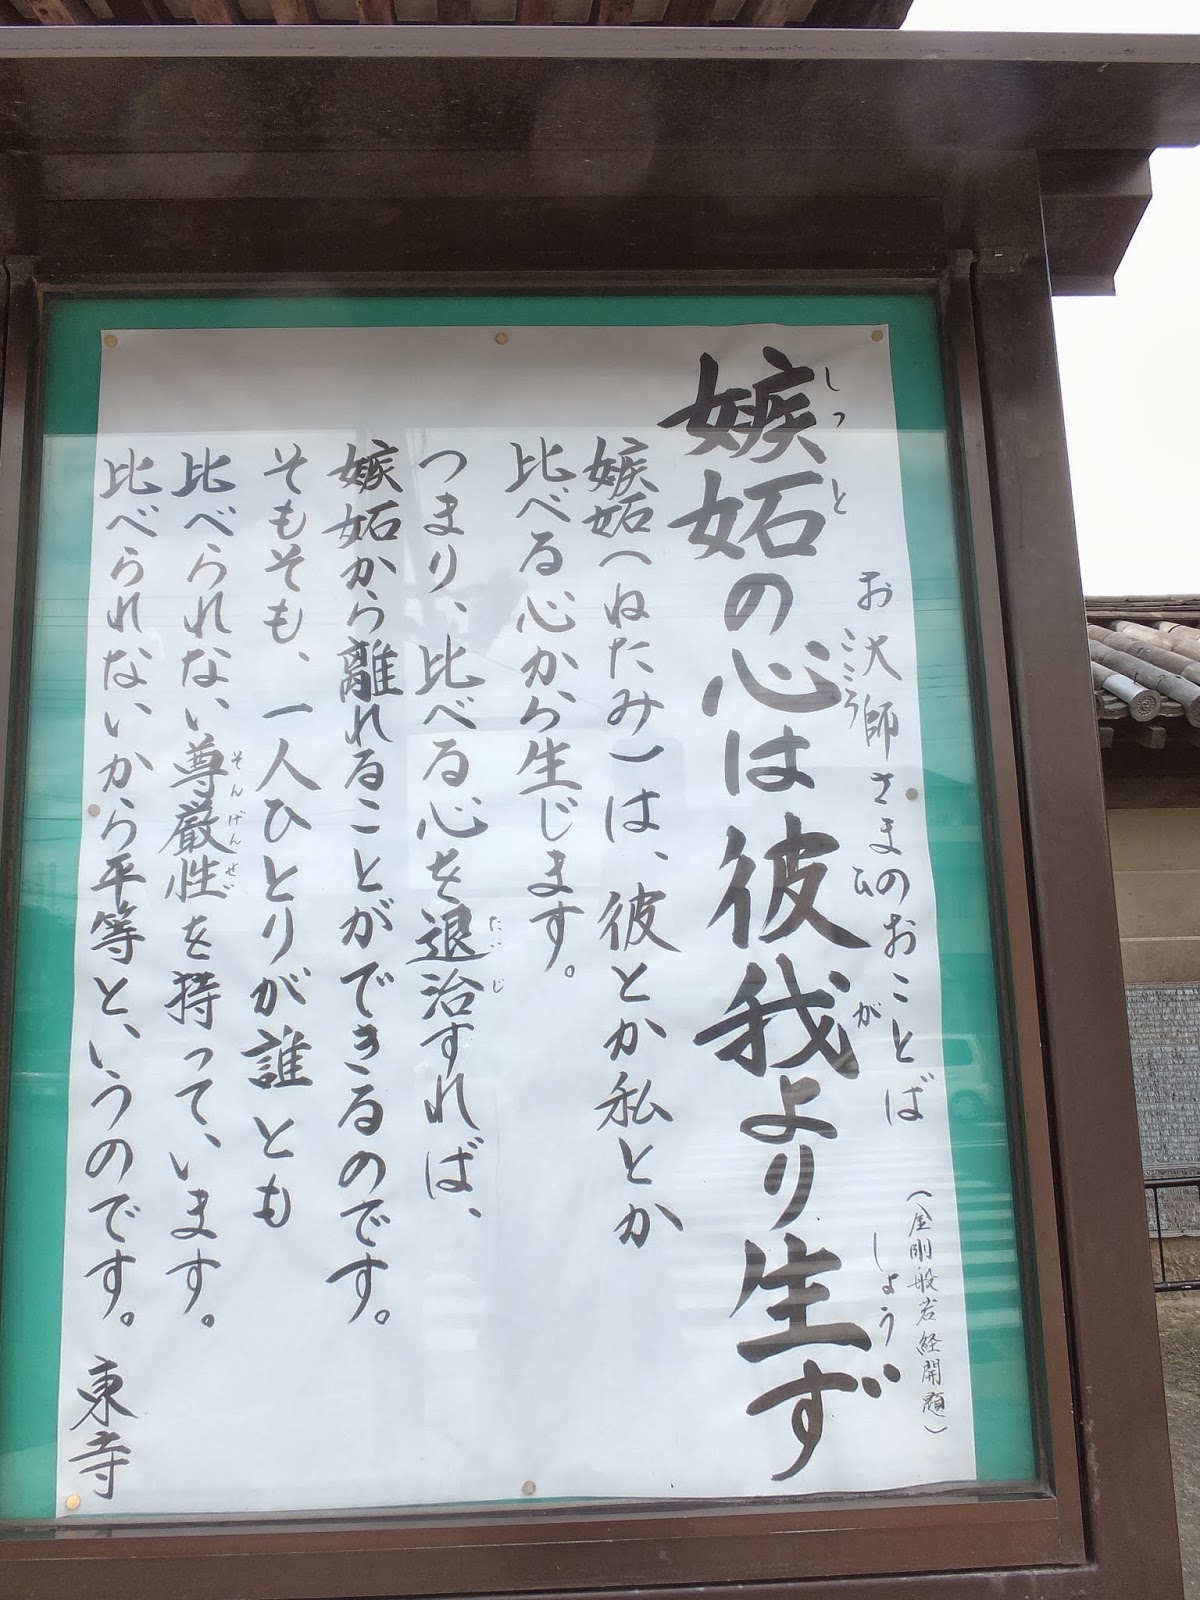 お大師さまのおことば（金剛般若経開題）
嫉妬の心は彼我より生ず
しっとこころひがしょう
嫉妬（ねたみ）は、彼とか私とか
比べる心から生じます。
つまり、比べる心を退治すれば、
たいじ
嫉妬から離れることができるのです。
そもそも、一人ひとりが誰とも
比べられない尊厳性を持っています。
そんげんせい
比べられないから平等というのです。
東寺